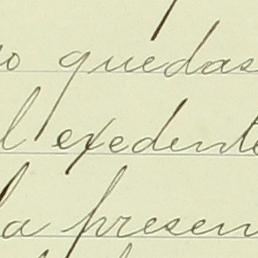 o quedas
l exedente
la presen